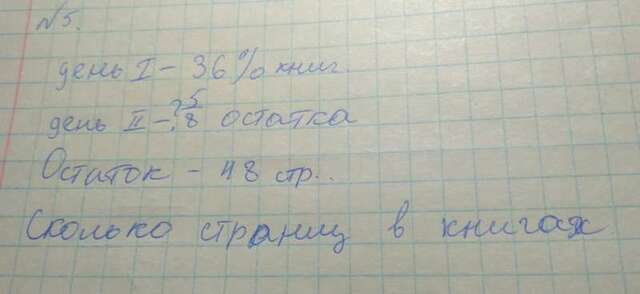 №5.
день I - 36% книг.
день II - ? 5/8 остатка
Остаток - 48 стр..
Сколько страниц в книгах